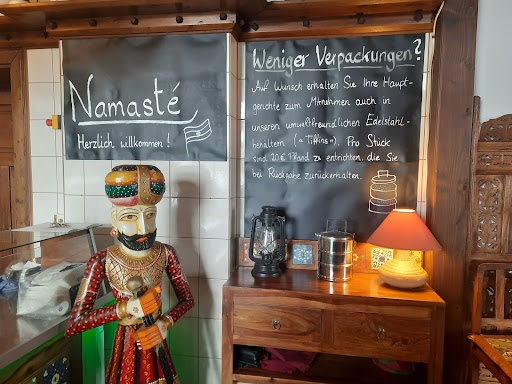 Namasté
Herzlich willkommen!
Weniger Verpackungen?
Auf Wunsch erhalten Sie Ihre Haupt-
gerichte zum Mitnehmen auch in
unseren umweltfreundlichen Edelstahl-
behältern („Tiffins"). Pro Stück
sind 20€ Pfand zu entrichten, die Sie
bei Rückgabe zurückerhalten.